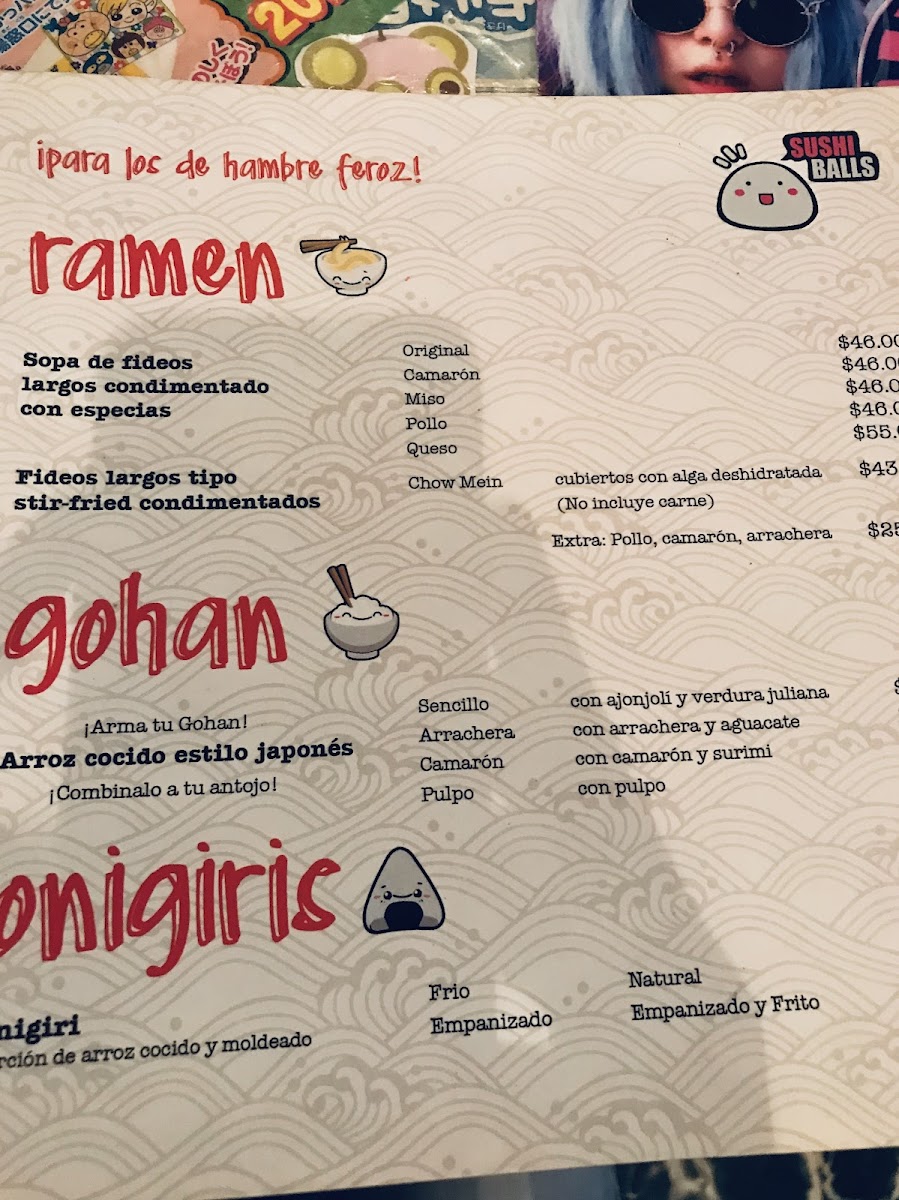 ¡para los de hambre feroz!
SUSHI
BALLS
ramen
Sopa de fideos
largos condimentado
con especias
Original $46.00
Camarón $46.0
Miso $46.0
Pollo $46.
Queso $55.
Fideos largos tipo
stir-fried condimentados
Chow Mein cubiertos con alga deshidratada $43
(No incluye carne)
Extra: Pollo, camarón, arrachera $25
gohan
¡Arma tu Gohan!
Arroz cocido estilo japonés
¡Combinalo a tu antojo!
Sencillo con ajonjolí y verdura juliana
Arrachera con arrachera y aguacate
Camarón con camarón y surimi
Pulpo con pulpo
onigiris
nigiri
rción de arroz cocido y moldeado
Frio Natural
Empanizado Empanizado y Frito